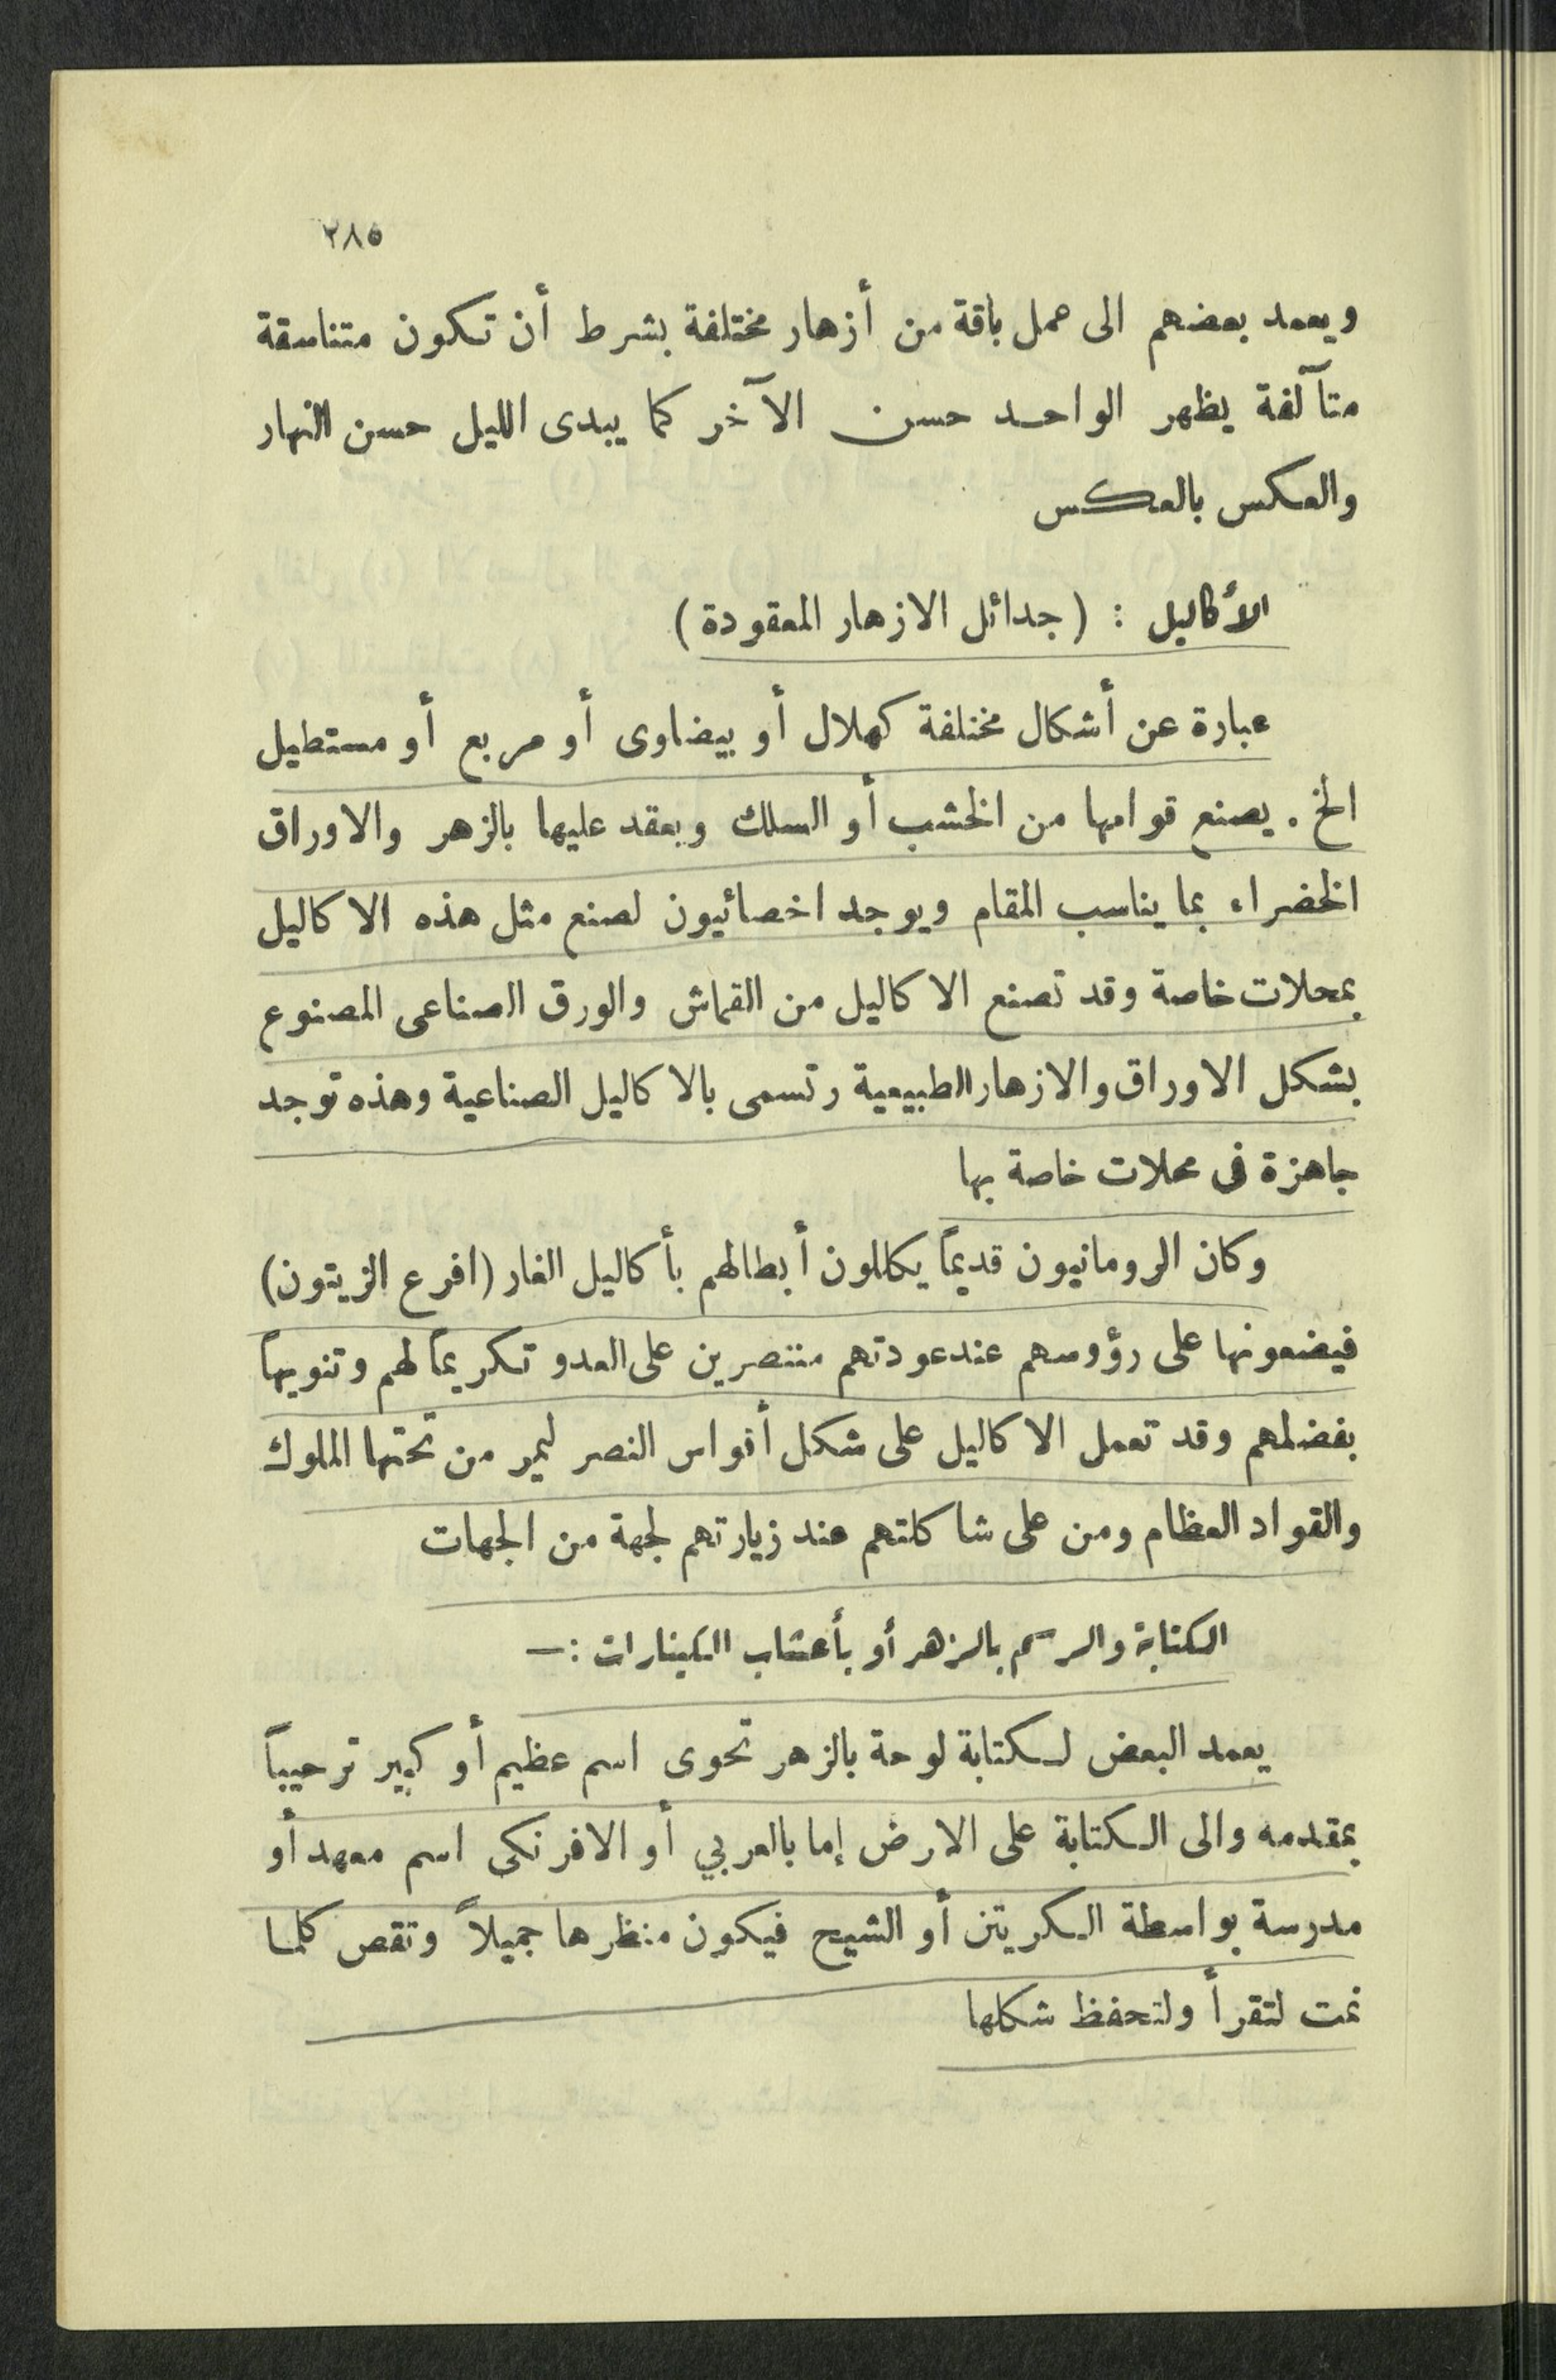 ٢٨٥
ويعمد بعضهم الى عمل باقة من أزهار مختلفة بشرط أن تكون متناسقة
متآلفة يظهر الواحد حسن الآخر كما يبدى الليل حسن النهار
والعكس بالعكس
الأكاليل : (جدائل الازهار المعقودة)
عبارة عن أشكال مختلفة كهلال أو بيضاوى أو مربع أو مستطيل
الخ . يصنع قوامها من الخشب أو السلك ويعقد عليها بالزهر والاوراق
الخضراء بما يناسب المقام ويوجد اخصائيون لصنع مثل هذه الاكاليل
بمحلات خاصة وقد تصنع الاكاليل من القماش والورق الصناعى المصنوع
بشكل الاوراق والازهار الطبيعية وتسمى بالاكاليل الصناعية وهذه توجد
جاهزة فى محلات خاصة بها
وكان الرومانيون قديماً يكللون أبطالهم بأكاليل الغار (افرع الزيتون)
فيضعونها على رؤوسهم عند عودتهم منتصرين على العدو تكريماً لهم وتنويهاً
بفضلهم وقد تعمل الاكاليل على شكل أقواس النصر ليمر من تحتها الملوك
والقواد العظام ومن على شاكلتهم عند زيارتهم لجهة من الجهات
الكتابة والرسم بالزهر أو بأعشاب الكينارات :—
يعمد البعض لكتابة لوحة بالزهر تحوى اسم عظيم أو كبير ترحيباً
بمقدمه والى الكتابة على الارض إما بالعربي أو الافرنكى اسم معهد أو
مدرسة بواسطة الكريتن أو الشيح فيكون منظرها جميلاً وتقص كلما
نمت لتقرأ ولتحفظ شكلها